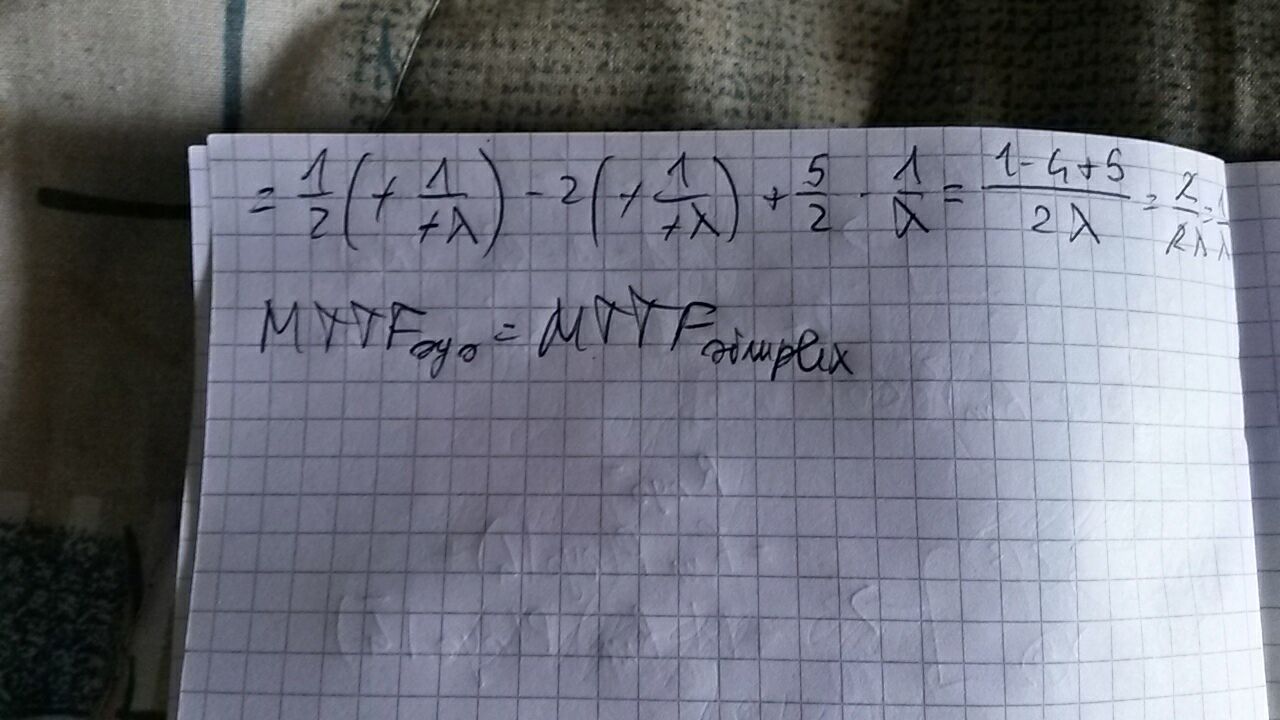 = 1/2 (+ 1/+λ) - 2 (+ 1/+λ) + 5/2 · 1/λ = 1-4+5/2λ = 2/2λ = 1/λ
MTTFsys = MTTFsimplex